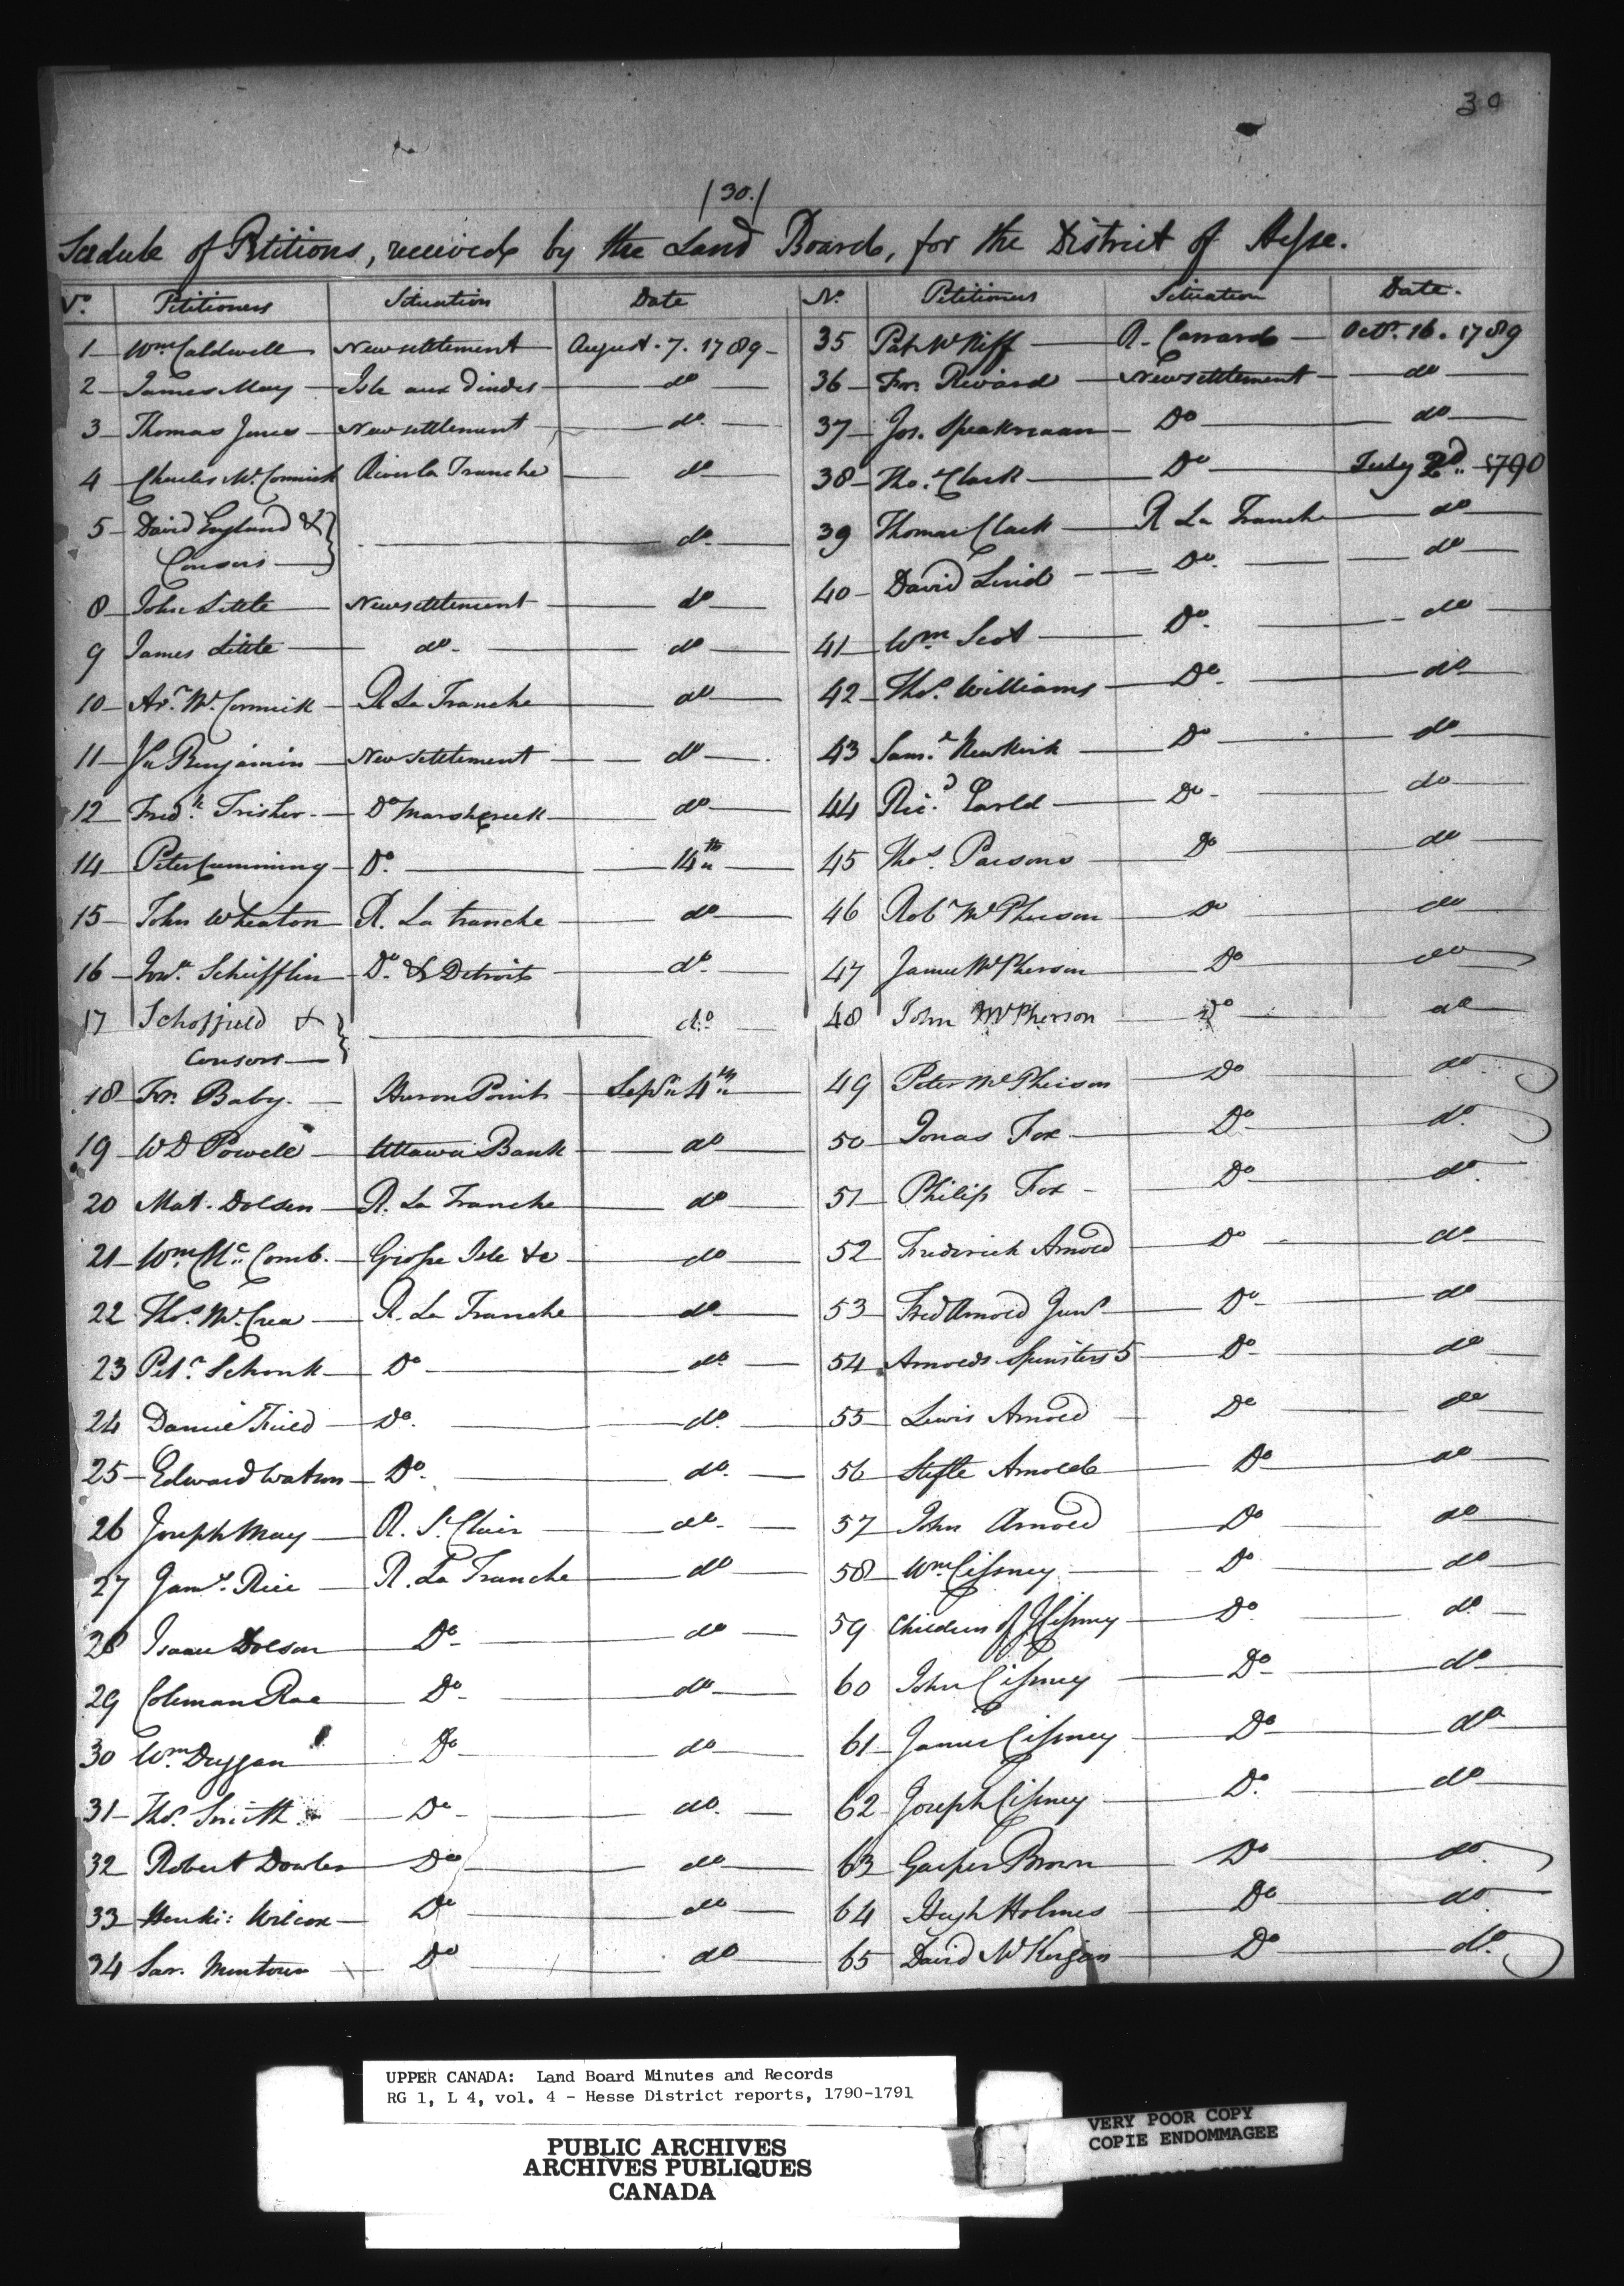 30
/30./
Scedule of Petitions, received by the Land Board, for the District of Hesse.
No. Petitioners Situation Date
1 Wm Caldwell New settlement August. 7. 1789
2 James May Isle aux dindes do
3 Thomas Jones New settlement do.
4 Charles Mc Cormick River la Tranche do
5 David England &
Consors do.
8 John Little New settlement do
9 James Little do. do
10 Ar. Mc Cormick R La Tranche do
11 Jn Benjamin New settlement do
12 Fredk Frisher Do Marsh creek do
14 Peter Cumming Do. 14th
15 John Wheaton R. La tranche do
16 Jonn Schifflin Do. & Detroit do.
17 Schoffield &
Consors do.
18 Fr. Baby. Huron Point Sepr 4th
19 W D Powell Uttawa Bank do
20 Mat. Dolsen R. La Tranche do
21 Wm Mc Comb. Grosse Isle &c do
22 Thos. Mc Crea R. La Tranche do
23 Petr. Schonk Do do.
24 Daniel Field Do. do.
25 Edward Watson Do. do.
26 Joseph May R. St Clair do.
27 Jams. Rice R. La Tranche do
28 Isaac Dolson Do do
29 Coleman Roe Do do
30 Wm Duggan Do do
31 Thos. Smith Do do.
32 Robert Dowler Do do
33 Henki: Wilcox Do do
34 Sar. Montour Do do
No. Petitioners Situation Date.
35 Pat Mc Niff R. Canard Octr. 16. 1789
36 Fr. Rivard New settlement do
37 Jos. Speakmaan Do do
38 Tho. Clark Do July 2d. 1790
39 Thomas Clark R La Tranche do
40 David Lind Do. do
41 Wm Scot Do. do
42 Thos. Williams Do. do
43 Saml. Newkirk Do do
44 Ricd. Earld Do do
45 Thos. Parsons Do do
46 Robt Mc Pherson Do do
47 James Mc Pherson Do do
48 John Mc Pherson Do do
49 Peter Mc Pherson Do do.
50 Jonas Fox Do do.
51 Philip Fox Do do.
52 Frederick Arnold Do do
53 Fred Arnold Junr Do do
54 Arnolds Spinsters 5 Do do
55 Lewis Arnold Do do
56 Stefle Arnold Do do
57 John Arnold Do do
58 Wm Cissney Do do
59 Children of J Cissney Do do.
60 John Cissney Do do
61 James Cissney Do do
62 Joseph Cissney Do. do
63 Gasper Brown Do do.
64 Hugh Holmes Do do.
65 David Mc Kirgan Do do.
UPPER CANADA: Land Board Minutes and Records
RG 1, L 4, vol. 4 - Hesse District reports, 1790-1791
PUBLIC ARCHIVES
ARCHIVES PUBLIQUES
CANADA
VERY POOR COPY
COPIE ENDOMMAGEE